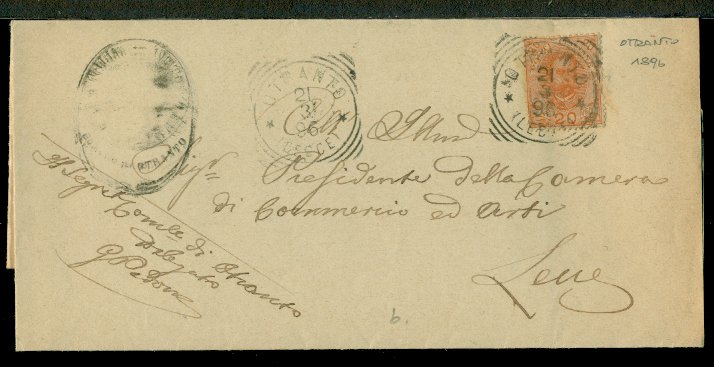 OTRANTO
1896
OTRANTO
21
96
(LECCE)
OTRANTO
21
96
(LEC
20
OTRANTO
All' Illmo
Sigr
Presidente della Camera
di Commercio ed Arti
Lecce
Il Segr
Comle di Otranto
Delegato
b.